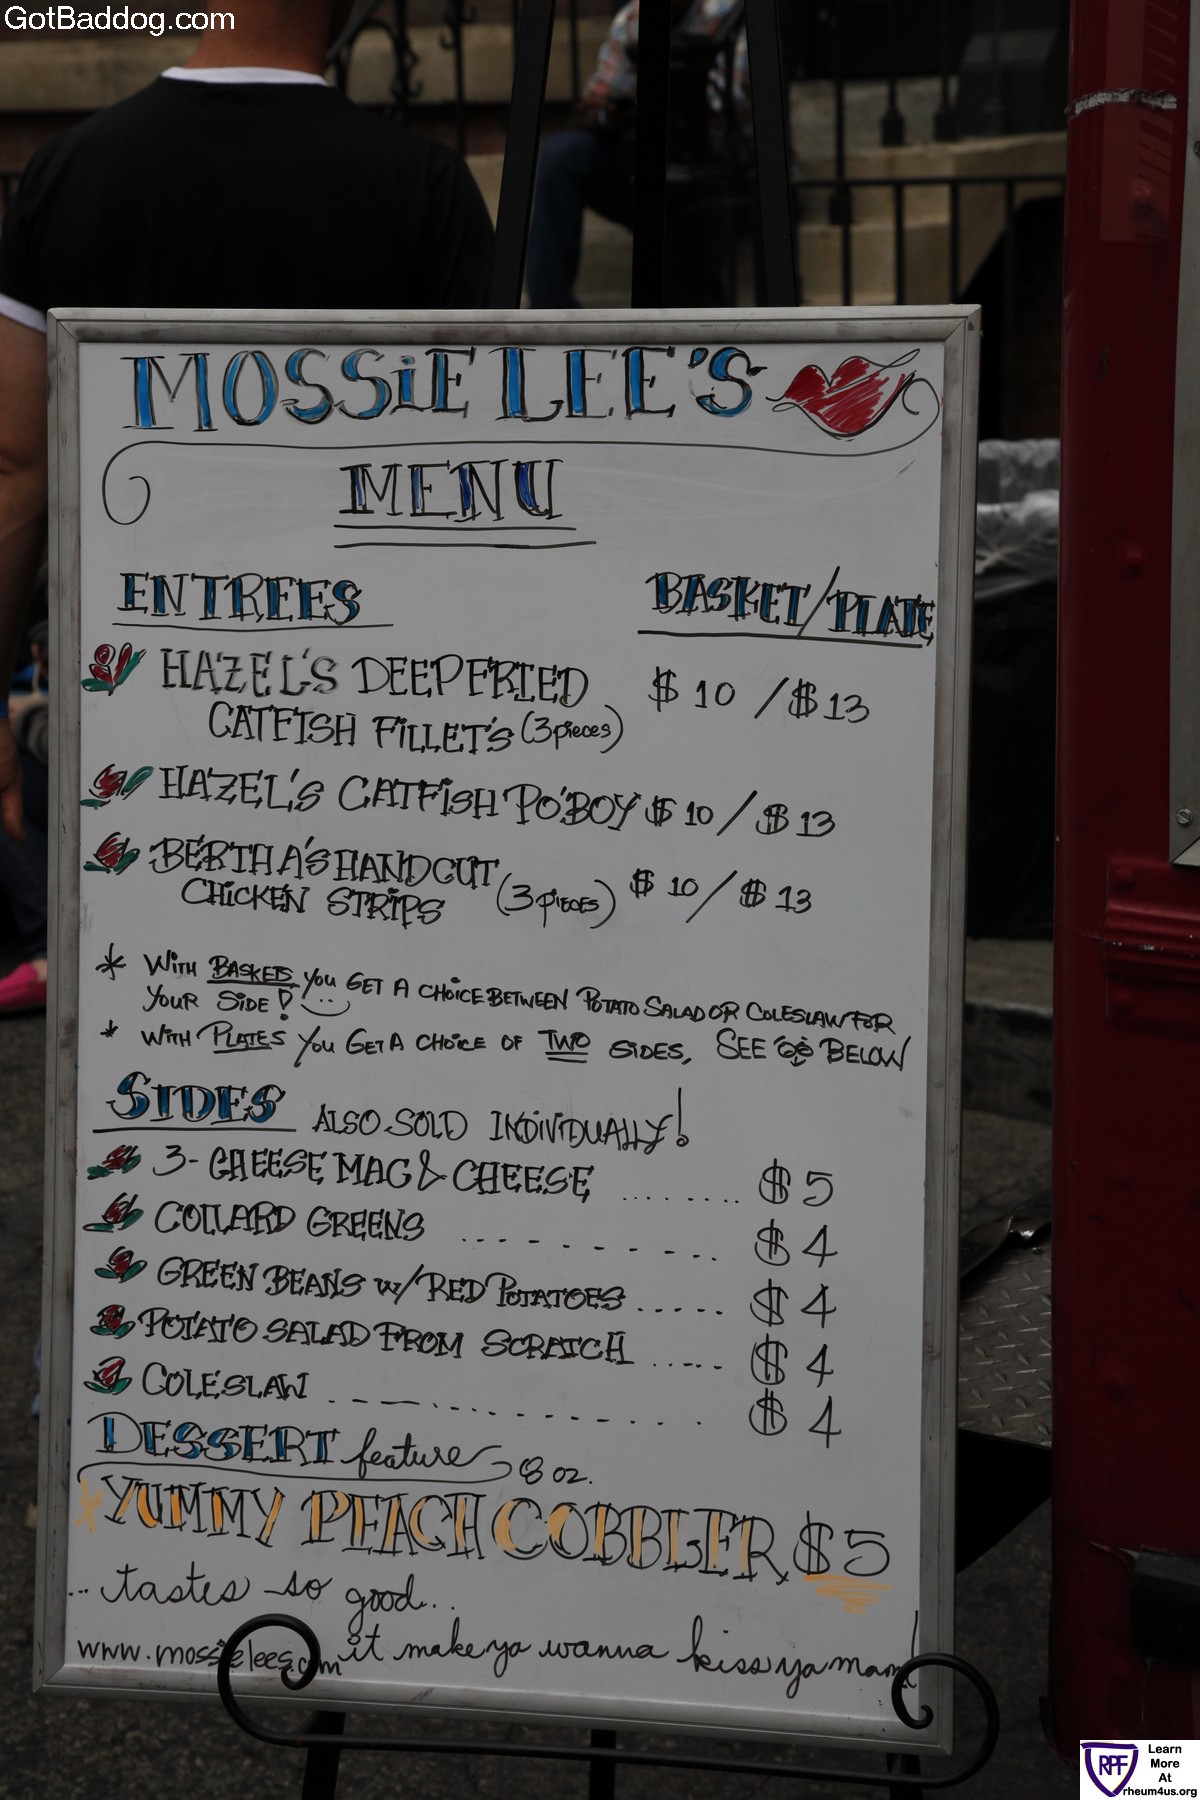 GotBaddog.com
MOSSiE LEE'S
MENU
ENTREES BASKET/PLATE
HAZEL'S DEEP FRIED $10 / $13
CATFISH FiLLET'S (3 pieces)
HAZEL'S CATFiSH PO'BOY $10 / $13
BERTHA'S HANDCUT
CHiCKEN STRiPS (3 PiECES) $10 / $13
* WiTH BASKETS YOU GET A CHOiCE BETWEEN POTATO SALAD OR COLESLAW FOR
YOUR SiDE!
* WiTH PLATES YOU GET A CHOiCE OF TWO SiDES, SEE BELOW
SIDES ALSO SOLD INDiViDUALLY!
3-CHEESE MAC & CHEESE ........ $5
COLLARD GREENS .......... $4
GREEN BEANS w/RED POTATOES ..... $4
POTATO SALAD FROM SCRATCH ..... $4
COLESLAW ............. $4
DESSERT feature 8 oz.
YUMMY PEACH COBBLER $5
... tastes so good...
www.mossielees.com it make ya wanna kiss ya mama!
RPF
Learn
More
At
rheum4us.org